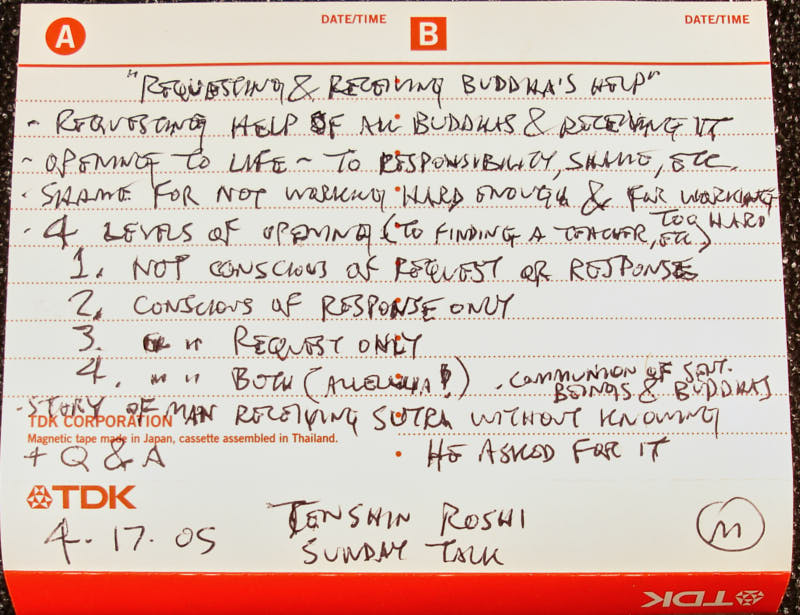 A DATE/TIME B DATE/TIME
"REQUESTING & RECEIVING BUDDHA'S HELP"
- REQUESTING HELP OF ALL BUDDHAS & RECEIVING IT
- OPENING TO LIFE ~ TO RESPONSIBILITY, SHAME, ETC.
- SHAME FOR NOT WORKING HARD ENOUGH & FOR WORKING
TOO HARD
- 4 LEVELS OF OPENING (TO FINDING A TEACHER, ETC)
1. NOT CONSCIOUS OF REQUEST OR RESPONSE
2. CONSCIOUS OF RESPONSE ONLY
3. " " REQUEST ONLY
4. " " BOTH (ALLELUIA!) . COMMUNION OF SENT.
BEINGS & BUDDHAS
- STORY OF MAN RECEIVING SUTRA WITHOUT KNOWING
TDK CORPORATION
Magnetic tape made in Japan, cassette assembled in Thailand.
+ Q & A HE ASKED FOR IT
TDK
4.17.05 TENSHIN ROSHI
SUNDAY TALK
M
TDK